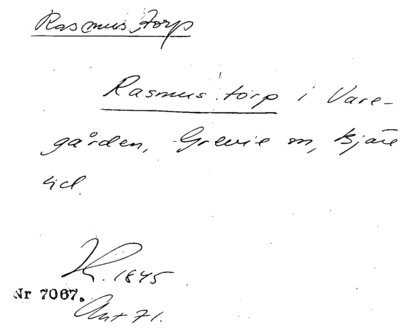 Rasmus torp
Rasmus torp i Vare-
gården, Grevie sn, Bjäre
hd.
K. 1845
Nr 7067.
Ant 71.